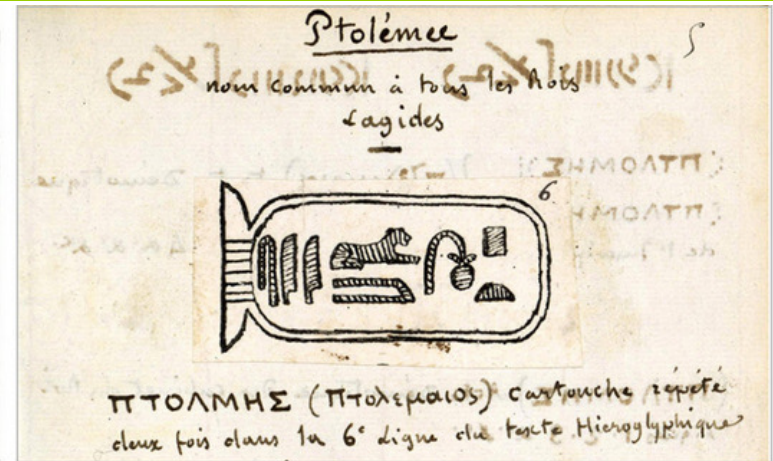 Ptolémée
5
nom commun à tous les Rois
Lagides
6
ΠΤΟΛΜΗΣ (Πτολεμαιος) Cartouche répété
deux fois dans la 6e Ligne du texte Hieroglyphique